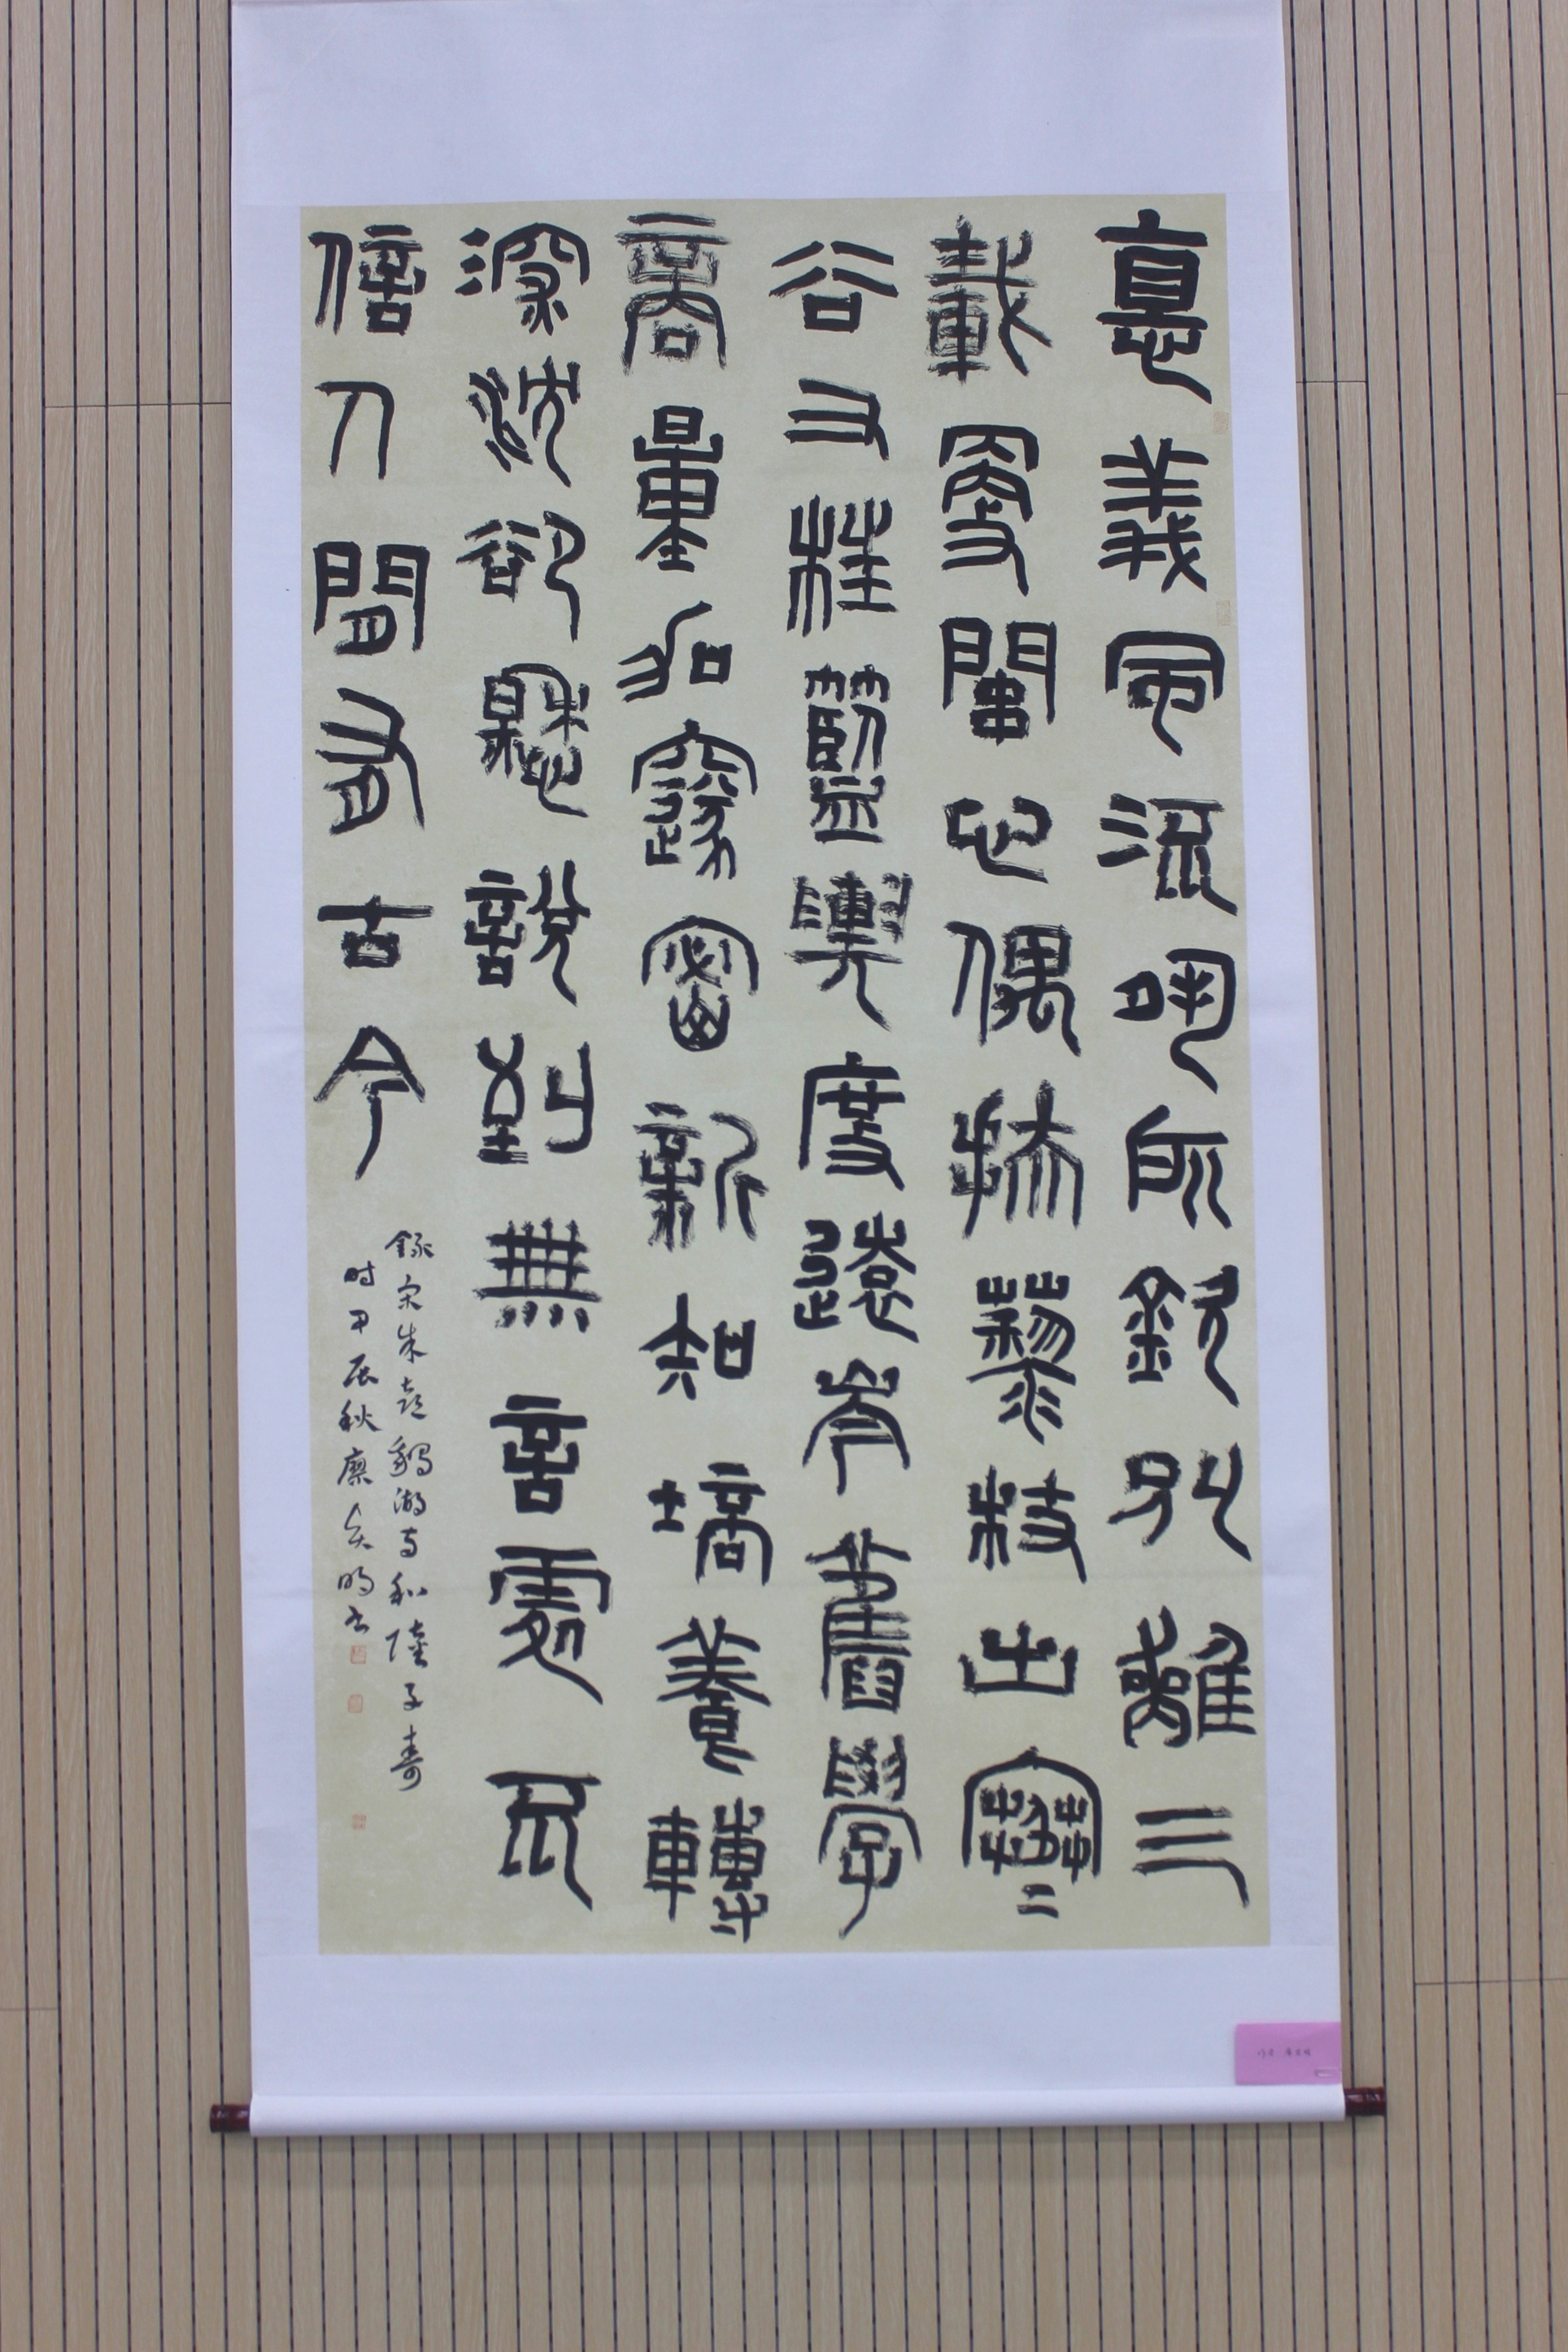 悳義風流夙所欽別離三
載更關心偶扶藜杖出寒
谷又枉籃輿度遠岑舊學
商量加邃密新知培養轉
深沈卻懸說到無言處不
信人間有古今
錄宋朱熹鵝湖寺和陸子壽
时甲辰秋廉明书